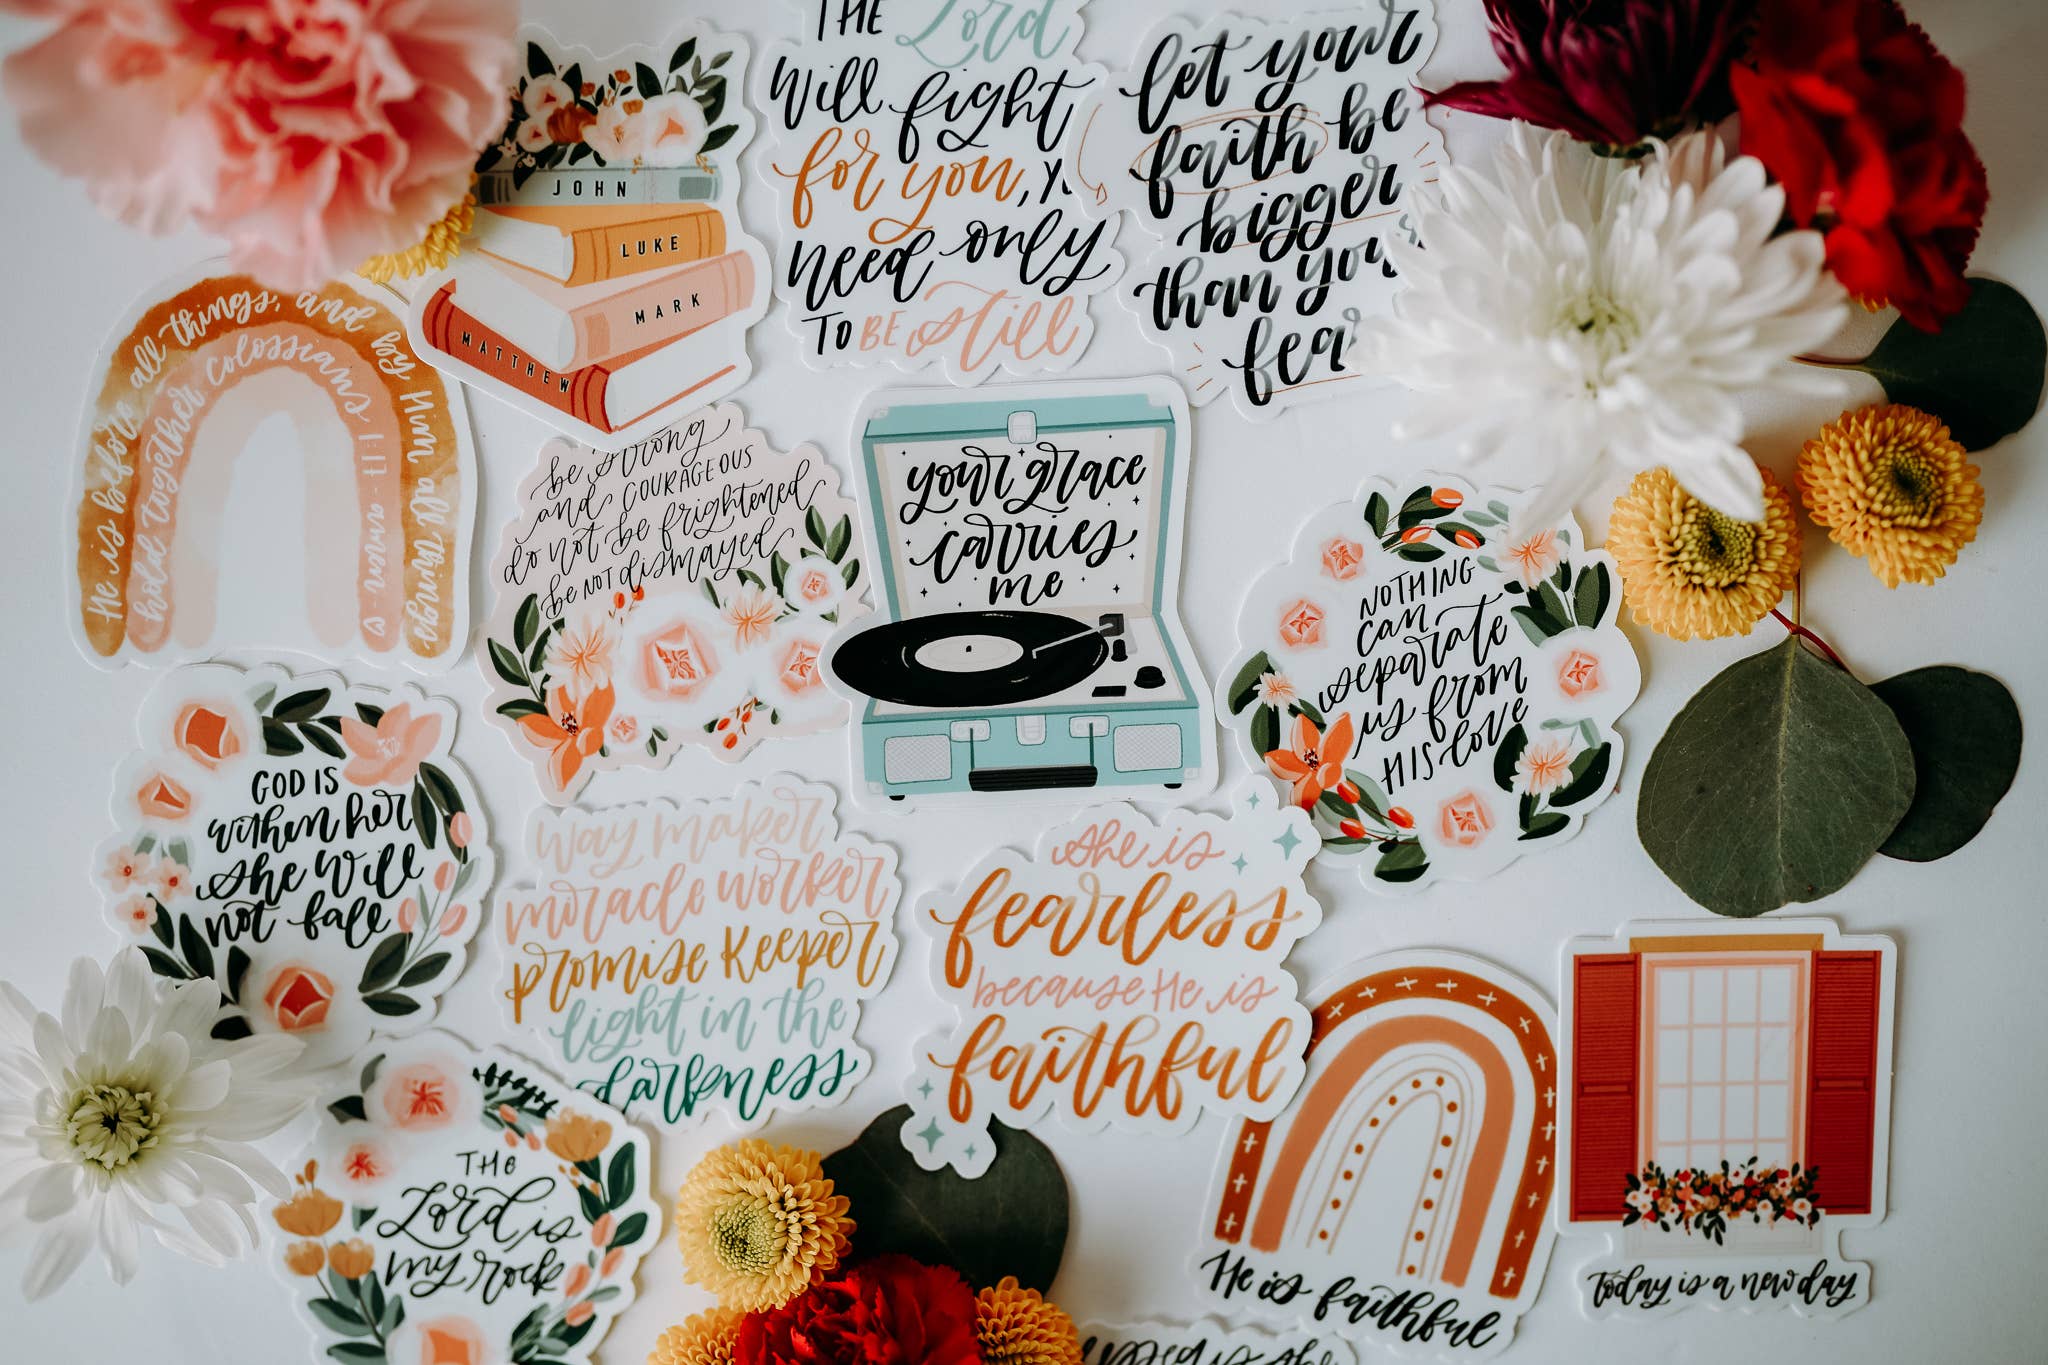 JOHN
LUKE
MARK
MATTHEW
THE Lord
will fight
for you,
need only
TO BE still
let your
faith be
bigger
than
He is before all things, and by Him all things
hold together colossians 1:17
be strong
and COURAGEOUS
do not be frightened
be NOT dismayed
your grace
carries
me
NOTHING
can
separate
us from
HIS love
GOD IS
within her
she will
not fall
way maker
miracle worker
promise keeper
light in the
darkness
she is
fearless
because He is
faithful
THE
Lord is
my rock
He is faithful
Today is a new day
is she